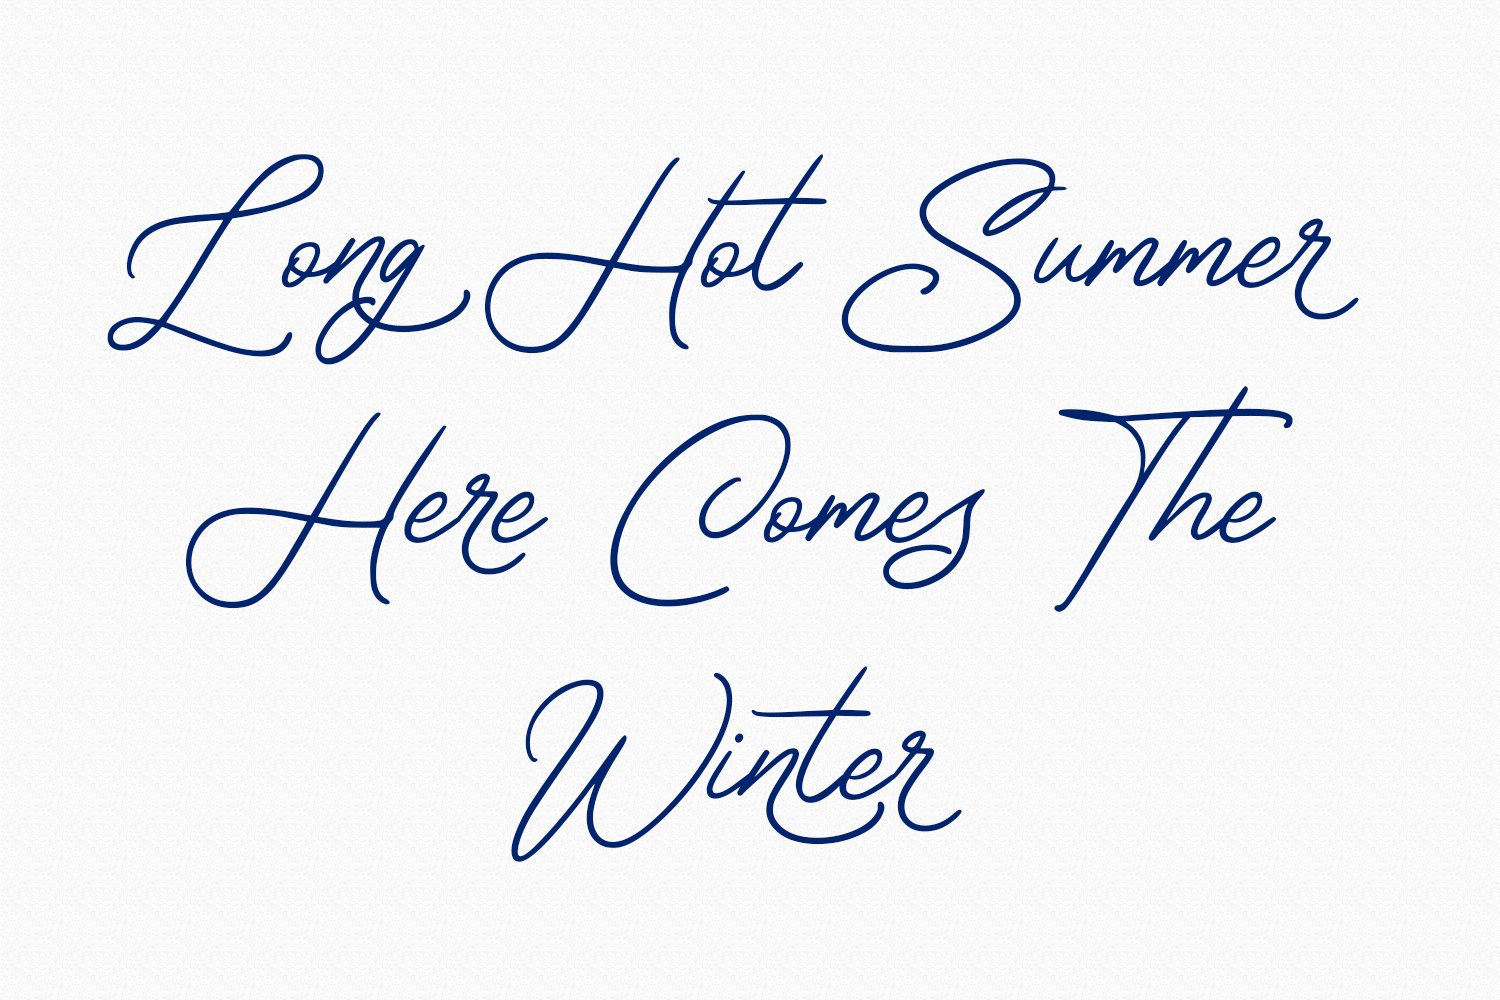 Long Hot Summer
Here Comes The
Winter